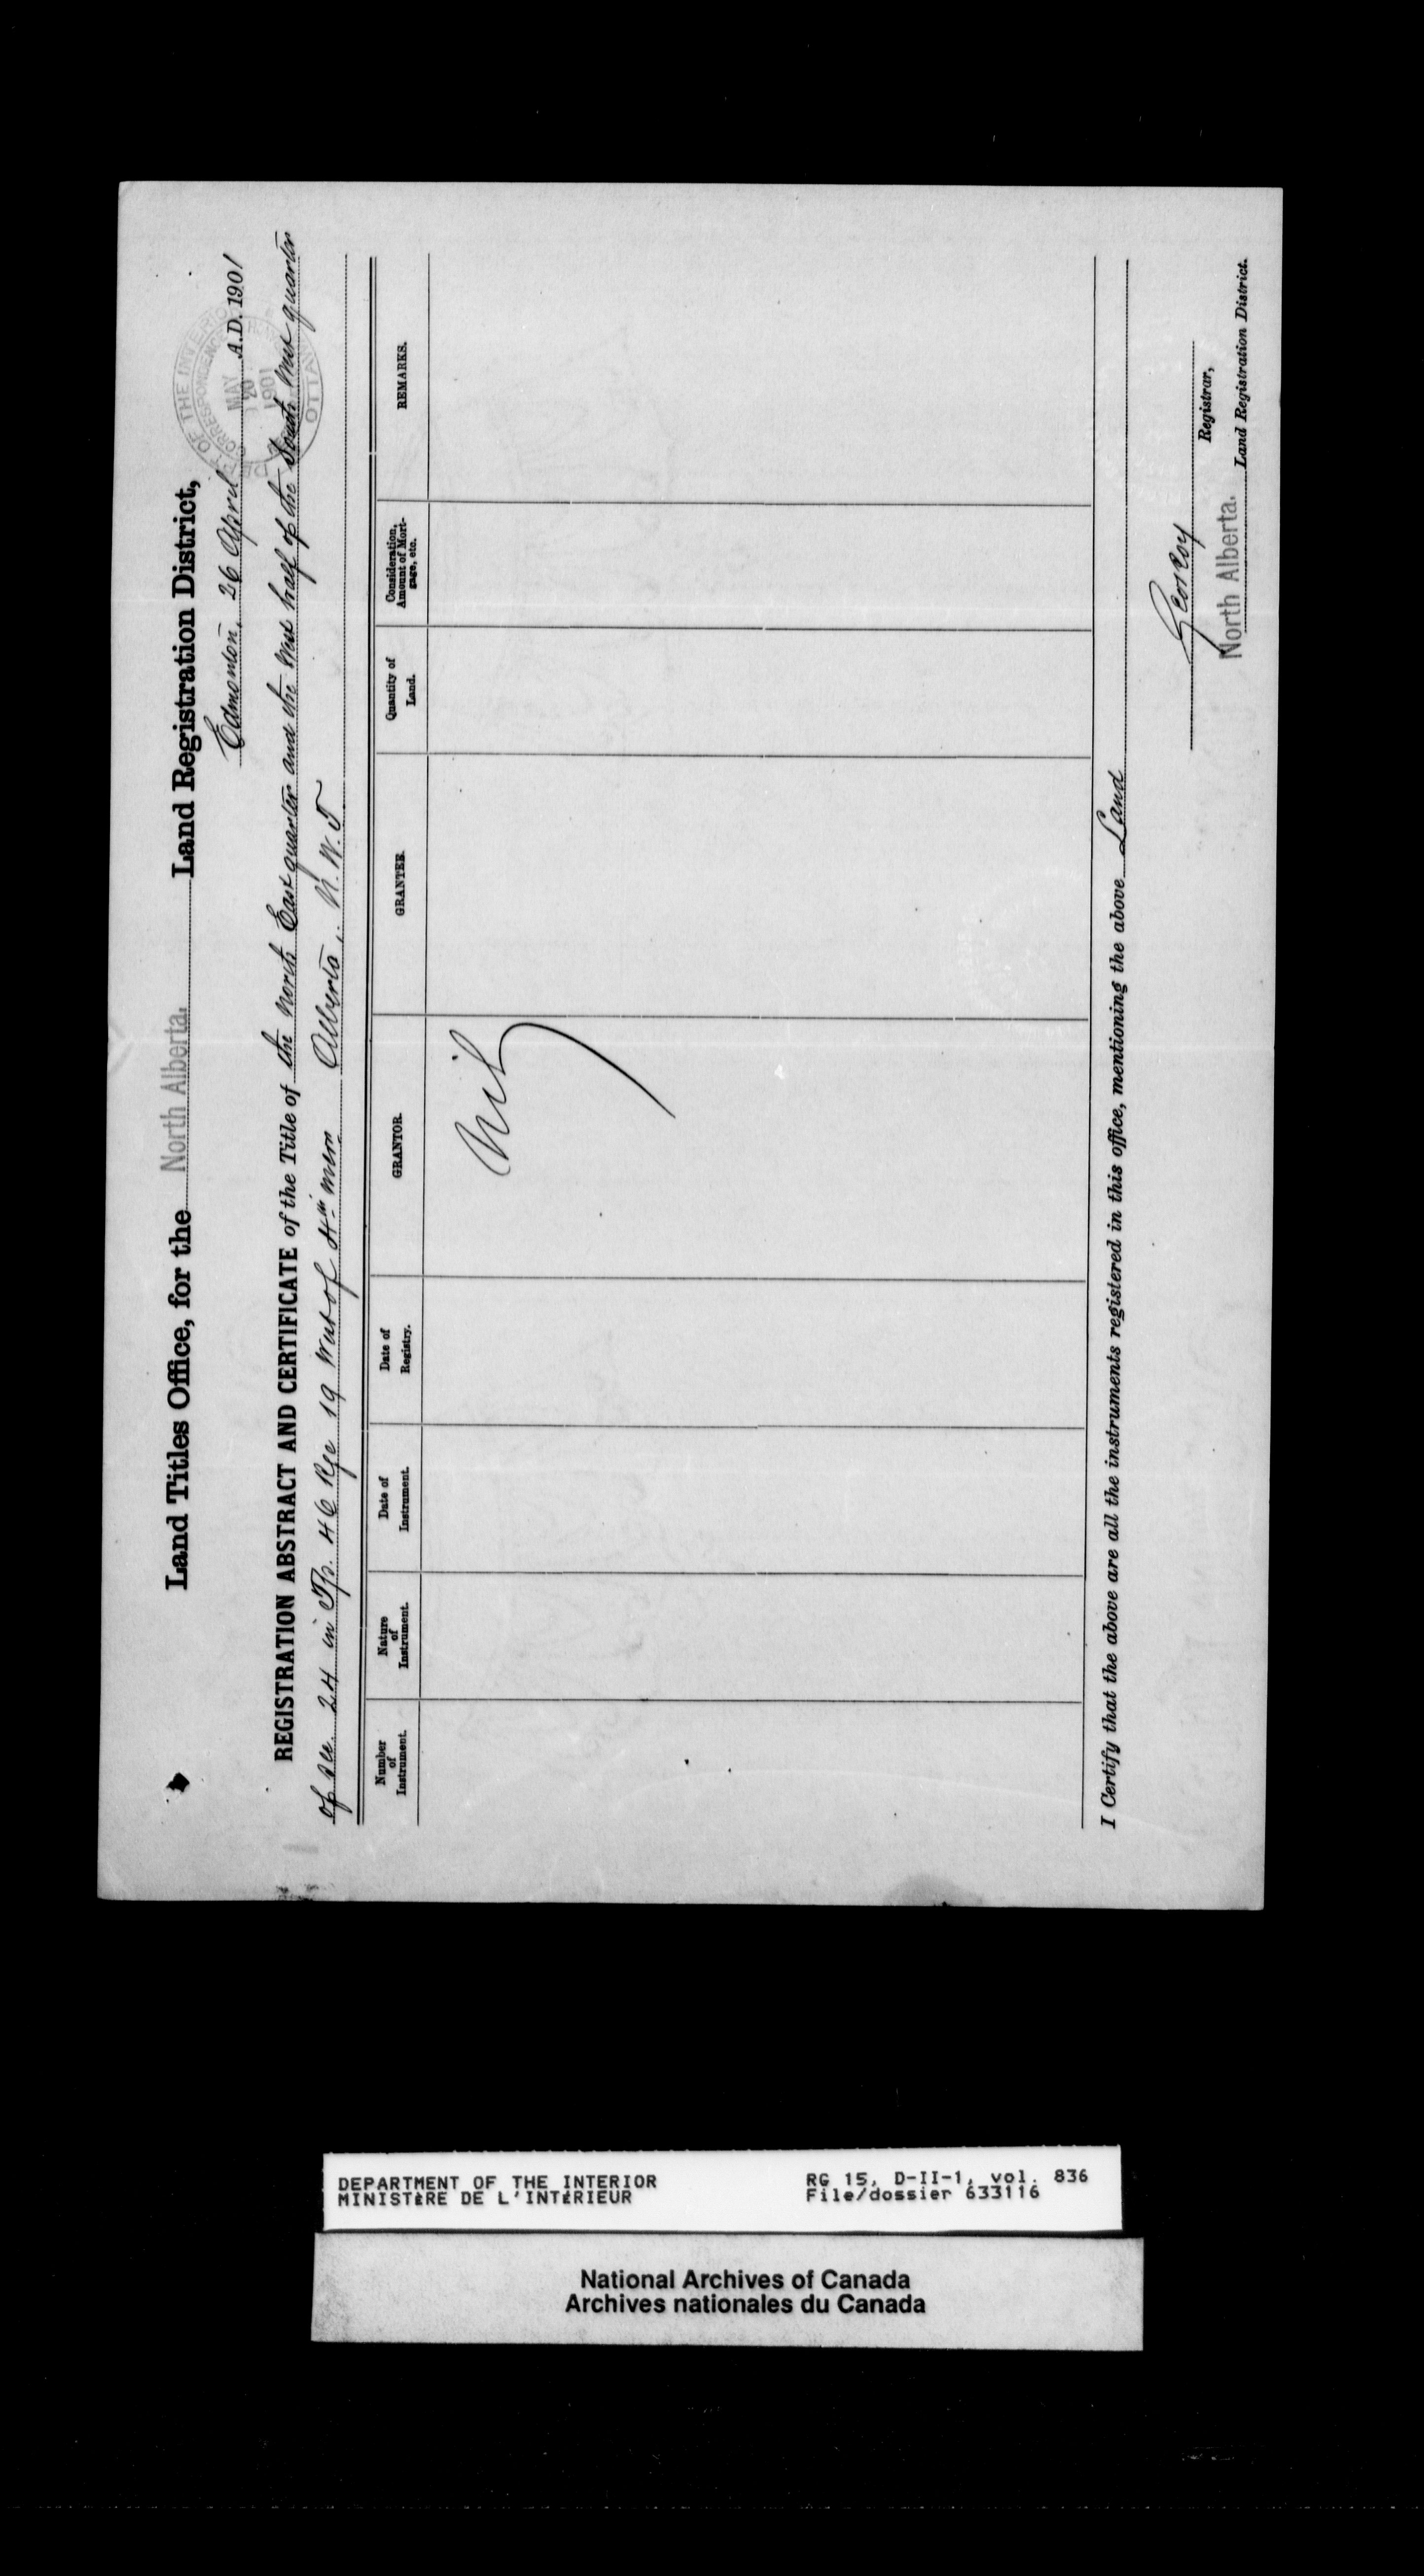 Land Titles Office, for the North Alberta. Land Registration District,
Edmonton, 26 April A.D. 1901
OF THE INTERIO
CORRESPONDENCE
MAY
20
1901
OTTAWA
REGISTRATION ABSTRACT AND CERTIFICATE of the Title of the North East quarter and the West half of the South West quarter
of Sec. 24 in Tp. 46 Rge 19 West of 4th mern Alberta, N.W.T.
Number of Instrument.
Nature of Instrument.
Date of Instrument.
Date of Registry.
GRANTOR.
GRANTEE.
Quantity of Land.
Consideration, Amount of Mortgage, etc.
REMARKS.
Nil
I Certify that the above are all the instruments registered in this office, mentioning the above Land
Geo Roy
Registrar,
North Alberta. Land Registration District.
DEPARTMENT OF THE INTERIOR RG 15, D-II-1, vol. 836
MINISTÈRE DE L'INTÉRIEUR File/dossier 633116
National Archives of Canada
Archives nationales du Canada